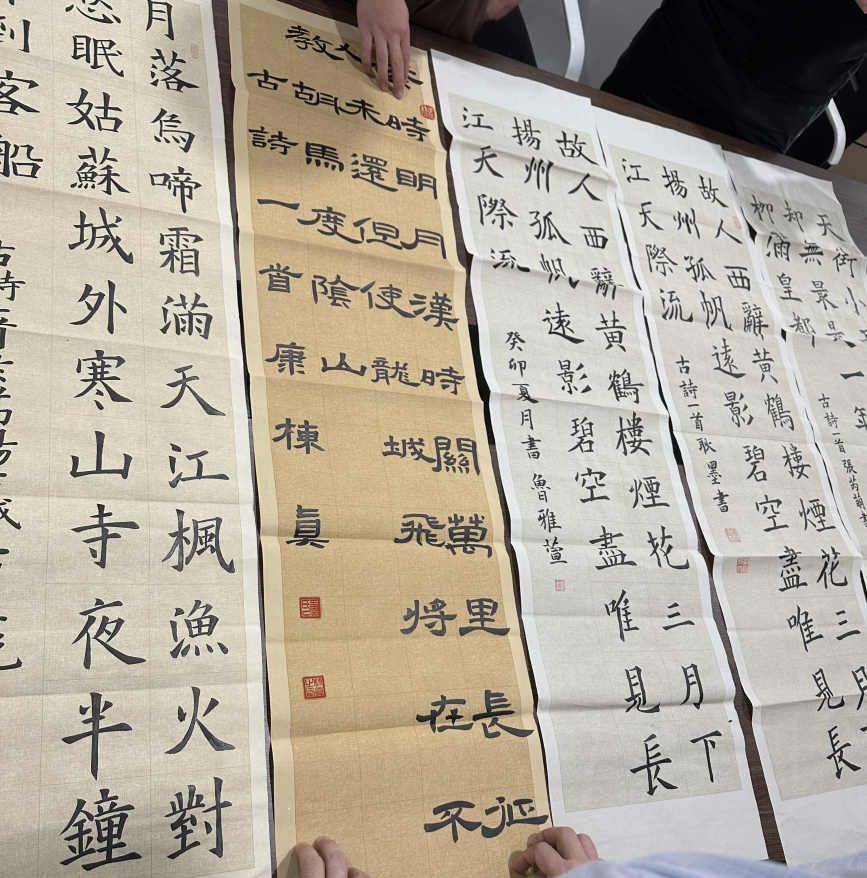 天街小
却無最是一年
柳滿皇都
古詩一首張
故人西辭黃鶴樓煙花三月
揚州孤帆遠影碧空盡唯見長
江天際流
古詩一首耿墨書
故人西辭黃鶴樓煙花三月下
揚州孤帆遠影碧空盡唯見長
江天際流
癸卯夏月書魯雅萱
時明月漢時關萬里長征
人未還但使龍城飛將在不
教胡馬度陰山
古詩一首康棟貞
月落烏啼霜滿天江楓漁火對
愁眠姑蘇城外寒山寺夜半鐘
到客船
古詩一首